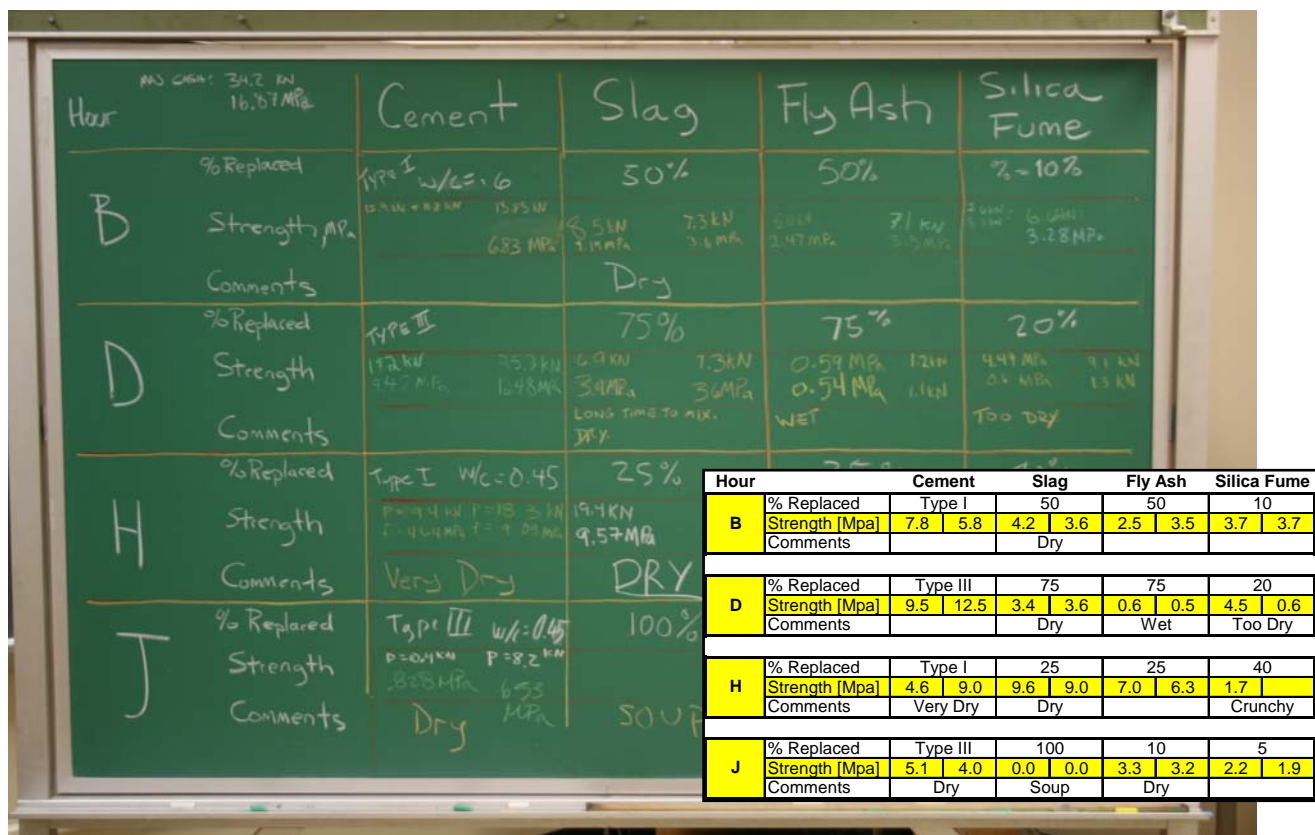 MS CASH: 34.2 KN
16.87 MPa
Hour Cement Slag Fly Ash Silica Fume
B
% Replaced TYPE I w/c=.6 50% 50% %=10%
13.85 KN
Strength, MPa 8.5 KN 7.3 KN 7.1 KN
6.83 MPa 4.19 MPa 3.6 MPa 2.47 MPa 3.5 MPa 3.28 MPa
Comments Dry
D
% Replaced TYPE III 75% 75% 20%
Strength 19.2 KN 25.3 KN 6.9 KN 7.3 KN 0.59 MPa 1.2 KN 4.49 MPa 9.1 KN
9.47 MPa 12.48 MPa 3.4 MPa 3.6 MPa 0.54 MPa 1.1 KN 0.6 MPa 1.3 KN
LONG TIME TO MIX. WET TOO DRY
Comments DRY.
H
% Replaced Type I W/C=0.45 25%
Strength P=9.4 KN P=18.3 KN 19.4 KN
9.57 MPa
Comments Very Dry DRY
J
% Replaced Type III w/c=0.45 100%
Strength P=8.2 KN
.828 MPa
Comments Dry SOUP
Hour Cement Slag Fly Ash Silica Fume
B
% Replaced Type I 50 50 10
Strength [Mpa] 7.8 5.8 4.2 3.6 2.5 3.5 3.7 3.7
Comments Dry
D
% Replaced Type III 75 75 20
Strength [Mpa] 9.5 12.5 3.4 3.6 0.6 0.5 4.5 0.6
Comments Dry Wet Too Dry
H
% Replaced Type I 25 25 40
Strength [Mpa] 4.6 9.0 9.6 9.0 7.0 6.3 1.7
Comments Very Dry Dry Crunchy
J
% Replaced Type III 100 10 5
Strength [Mpa] 5.1 4.0 0.0 0.0 3.3 3.2 2.2 1.9
Comments Dry Soup Dry